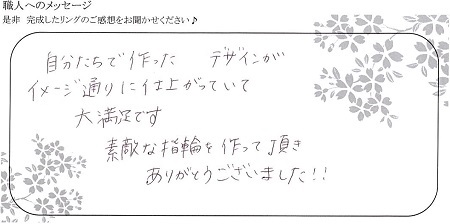 職人へのメッセージ
是非 完成したリングのご感想をお聞かせください♪
自分たちで作った デザインが
イメージ通りに仕上がっていて
大満足です
素敵な指輪を作って頂き
ありがとうございました!!